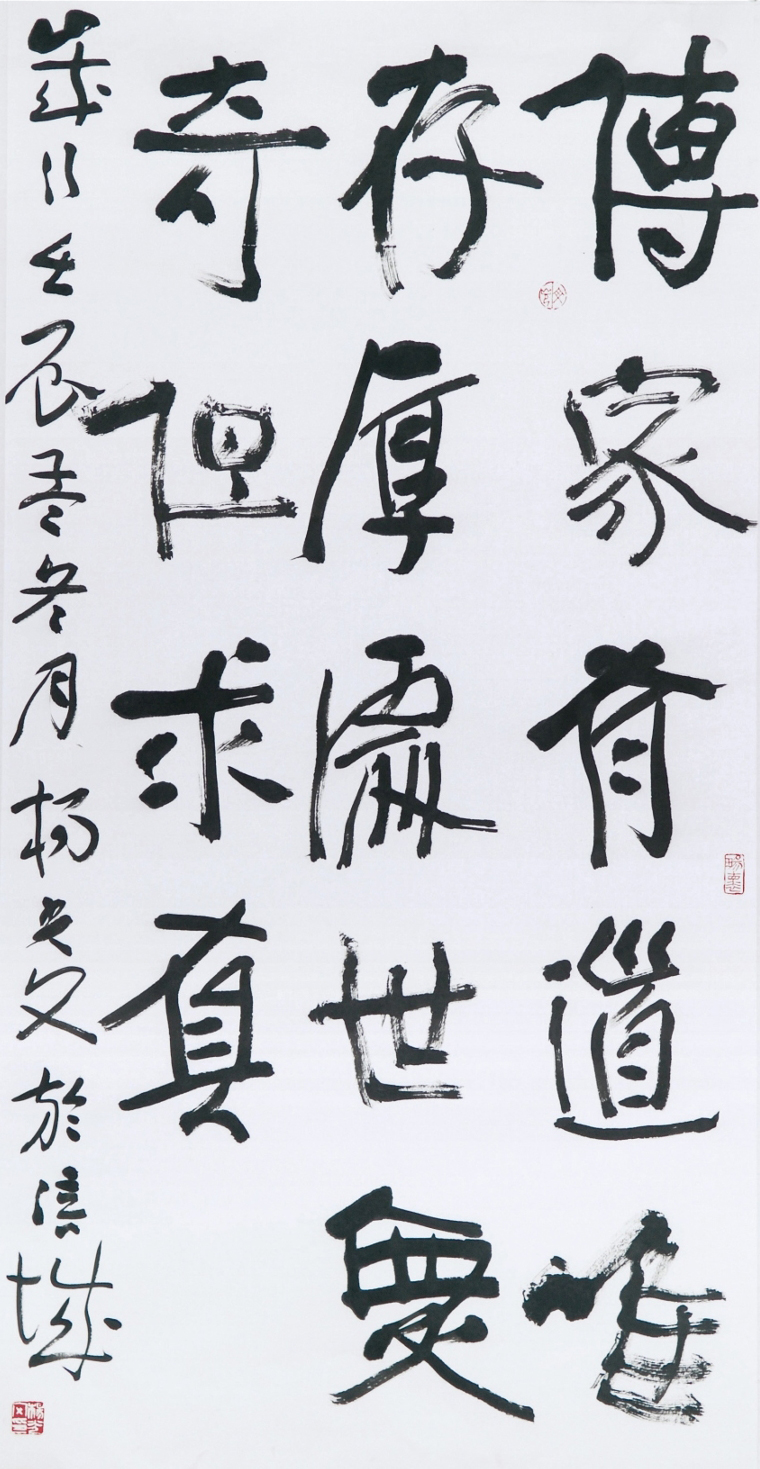 傳家有道唯
存厚處世無
奇但求真
歲次壬辰孟冬月楊光文於涪城